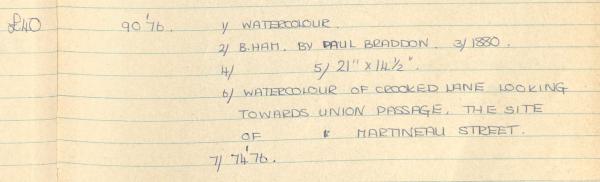 £40 90'76. 1/ WATERCOLOUR.
2/ B.HAM. BY PAUL BRADDON. 3/ 1880.
4/ 5/ 21" x 14½".
6/ WATERCOLOUR OF CROOKED LANE LOOKING
TOWARDS UNION PASSAGE. THE SITE
OF " MARTINEAU STREET.
7/ 74'76.